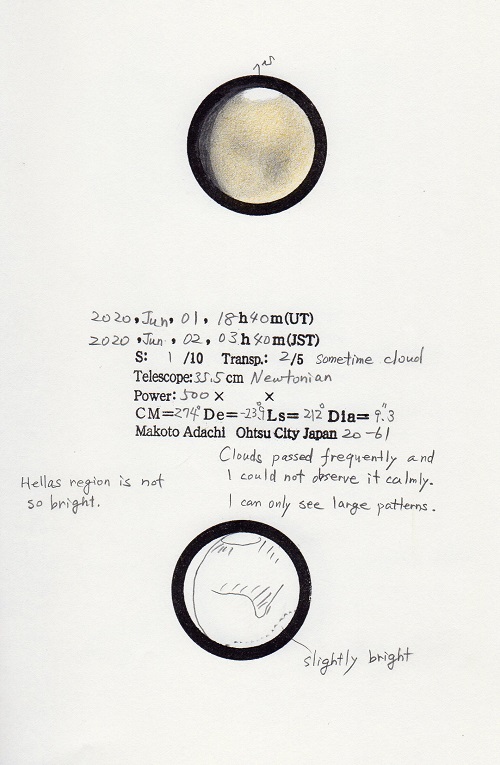 2020, Jun, 01, 18h40m(UT)
2020, Jun, 02, 03h40m(JST)
S: 1 /10 Transp.: 2/5 sometime cloud
Telescope: 35.5 cm Newtonian
Power: 500 × ×
CM=274° De=-23.9° Ls=212° Dia=9".3
Makoto Adachi Ohtsu City Japan 20-61
Clouds passed frequently and
I could not observe it calmly.
I can only see large patterns.
Hellas region is not
so bright.
slightly bright